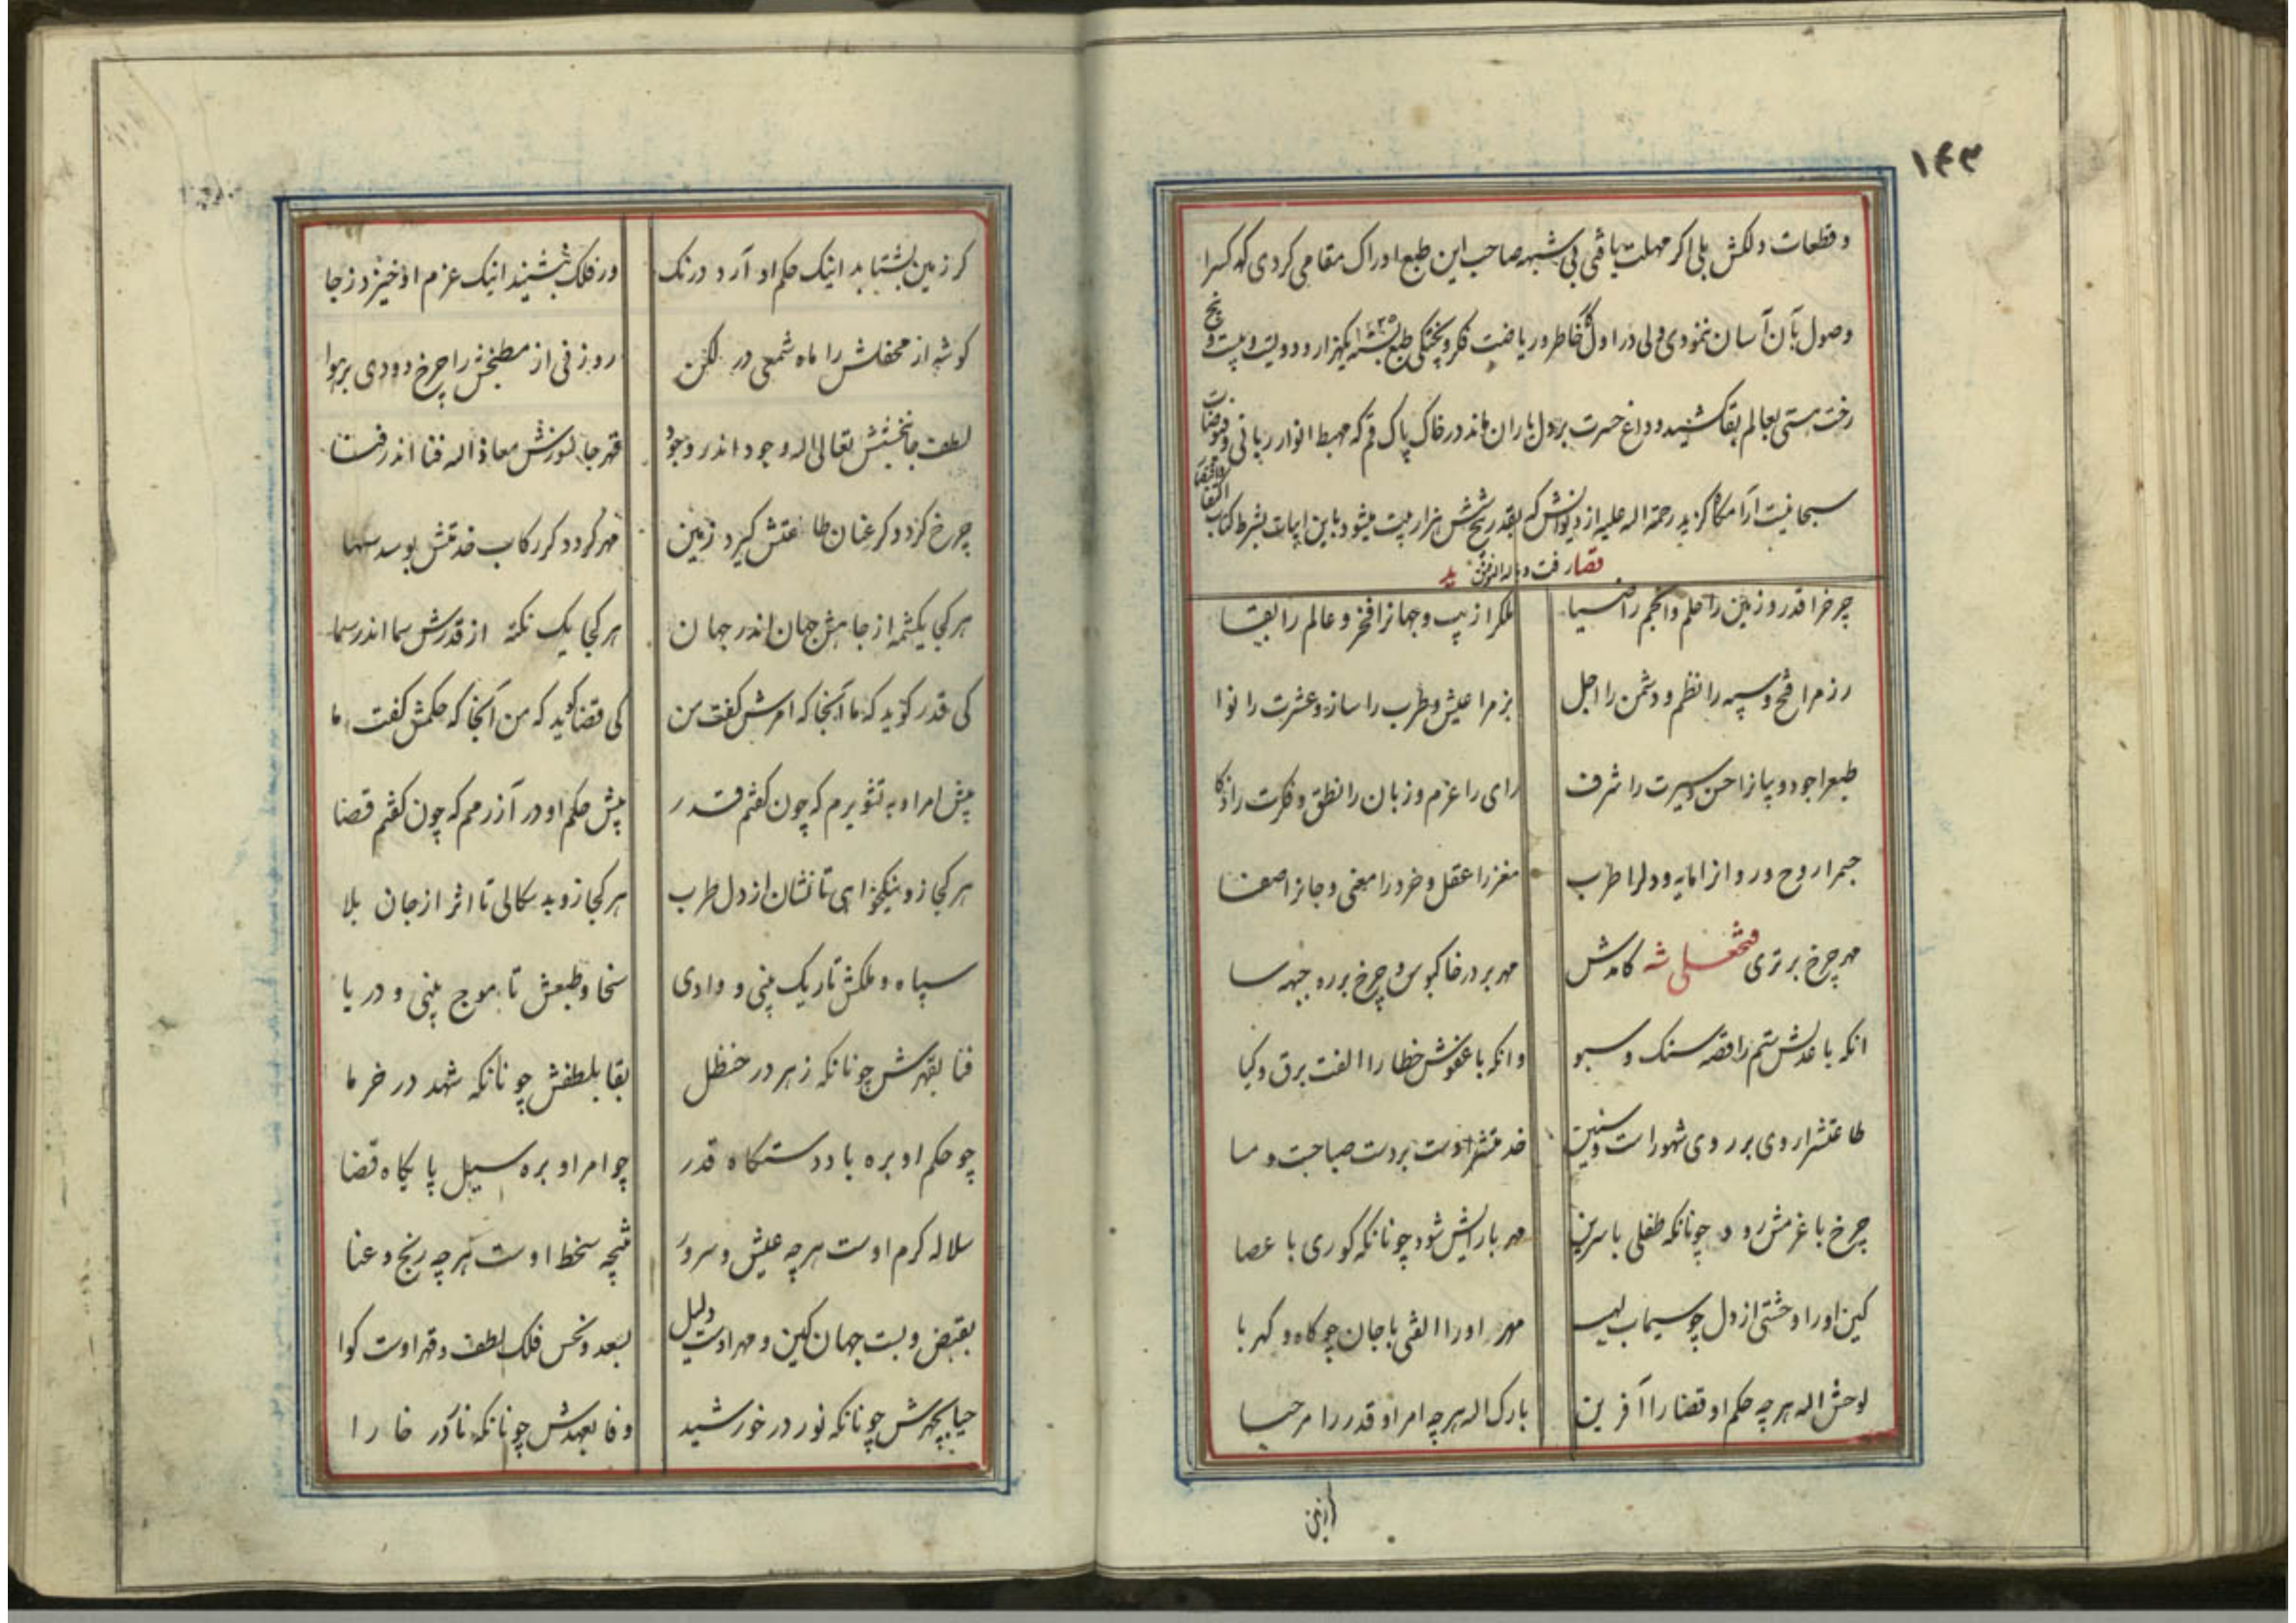 ۱۴۳
و قطعات دلکش بلی اکر مهلت یافتی بی شبهه صاحب این طبع ادراک مقامی کردی که کسرا
وصول بآن آسان ننمودی ولی در اول خاطر و ریاضت فکر و پختکی طبع ۱۲۲۵ یکهزار و دویست و بیست و پنج
رخت هستی بعالم بقا کشید و داغ حسرت بر دل یاران ماند در خاک پاک قم که مهبط انوار ربانی و فیوضات
سبحانیست آرامگاه کزید رحمة اله علیه از دیوانش که بقدر پنج شش هزار بیت میشود باین ابیات بشرط کتاب اکتفا
رفت و باله التوفیق
چرخرا قدر و زمین را حلم و انجم را ضیا
ملکرا زیب و جهانرا فخر و عالم را بقا
رزمرا فتح و سپه را نظم و دشمن را اجل
بزمرا عیش و طرب را ساز و عشرت را نوا
طبعرا جود و بیانرا حسن و سیرت را شرف
رای را عزم و زبان را نطق و فکرت را ذکا
جسمرا روح و روانرا مایه و دلرا طرب
مغزرا عقل و خرد را معنی و جانرا صفا
مهر چرخ برتری فتحعلی شه کامدش
مهر بر در خاکبوس و چرخ بر ره جبهه سا
انکه با عدلش ستم را قصه سنک و سبو
وانکه با عفوش خطا را الفت برق و کیا
طاعتشرا روی بر روی شهور است و سنین
خدمتشرا دست بر دست صباحست و مسا
چرخ با عزمش رود چونانکه طفلی با سرین
مهر با رایش شود چونانکه کوری با عصا
کین اورا وحشتی از دل چو سیماب لهیب
مهر اورا الفتی با جان چو کاه و کهربا
لوحش اله هر چه حکم او قضا را آفرین
بارک اله هر چه امر او قدر را مرحبا
کر زمین
کر زمین بشتابد اینک حکم او آرد درنک
ور فلک بنشیند اینک عزم او خیزد ز جا
کوشه از محفلش را ماه شمعی در لکن
روزنی از مطبخش را چرخ دودی بر هوا
لطف جانبخشش تعالی اله وجود اندر وجود
قهر جانسوزش معاذ اله فنا اندر فنا
چرخ کردد کر عنان طاعتش کیرد زمین
مهر کردد کر رکاب خدمتش بوسد سها
هر کجا یکشمه از جاهش جهان اندر جهان
هر کجا یک نکته از قدرش سما اندر سما
کی قدر کوید که ما آنجا که امرش کفت من
کی قضا کوید که من آنجا که حکمش کفت ما
پیش امر او به تشویرم که چون کفتم قدر
پیش حکم او در آزرمم که چون کفتم قضا
هر کجا زو نیکخواهی تا نشان از دل طرب
هر کجا زو بدسکالی تا اثر از جان بلا
سپاه و ملکش تا ریک بینی و وادی
سخا و طبعش تا موج بینی و دریا
فنا بقهرش چونانکه زهر در حنظل
بقا بلطفش چونانکه شهد در خرما
چو حکم او بره باد دستکاه قدر
چو امر او بره سیل پایکاه قضا
سلاله کرم اوست هر چه عیش و سرور
نتیجه سخط اوست هر چه رنج و عنا
بقبض و بسط جهان کین و مهر اوست دلیل
بسعد و نحس فلک لطف و قهر اوست کوا
حیا بچهرش چونانکه نور در خورشید
وفا بعهدش چونانکه نار در خارا